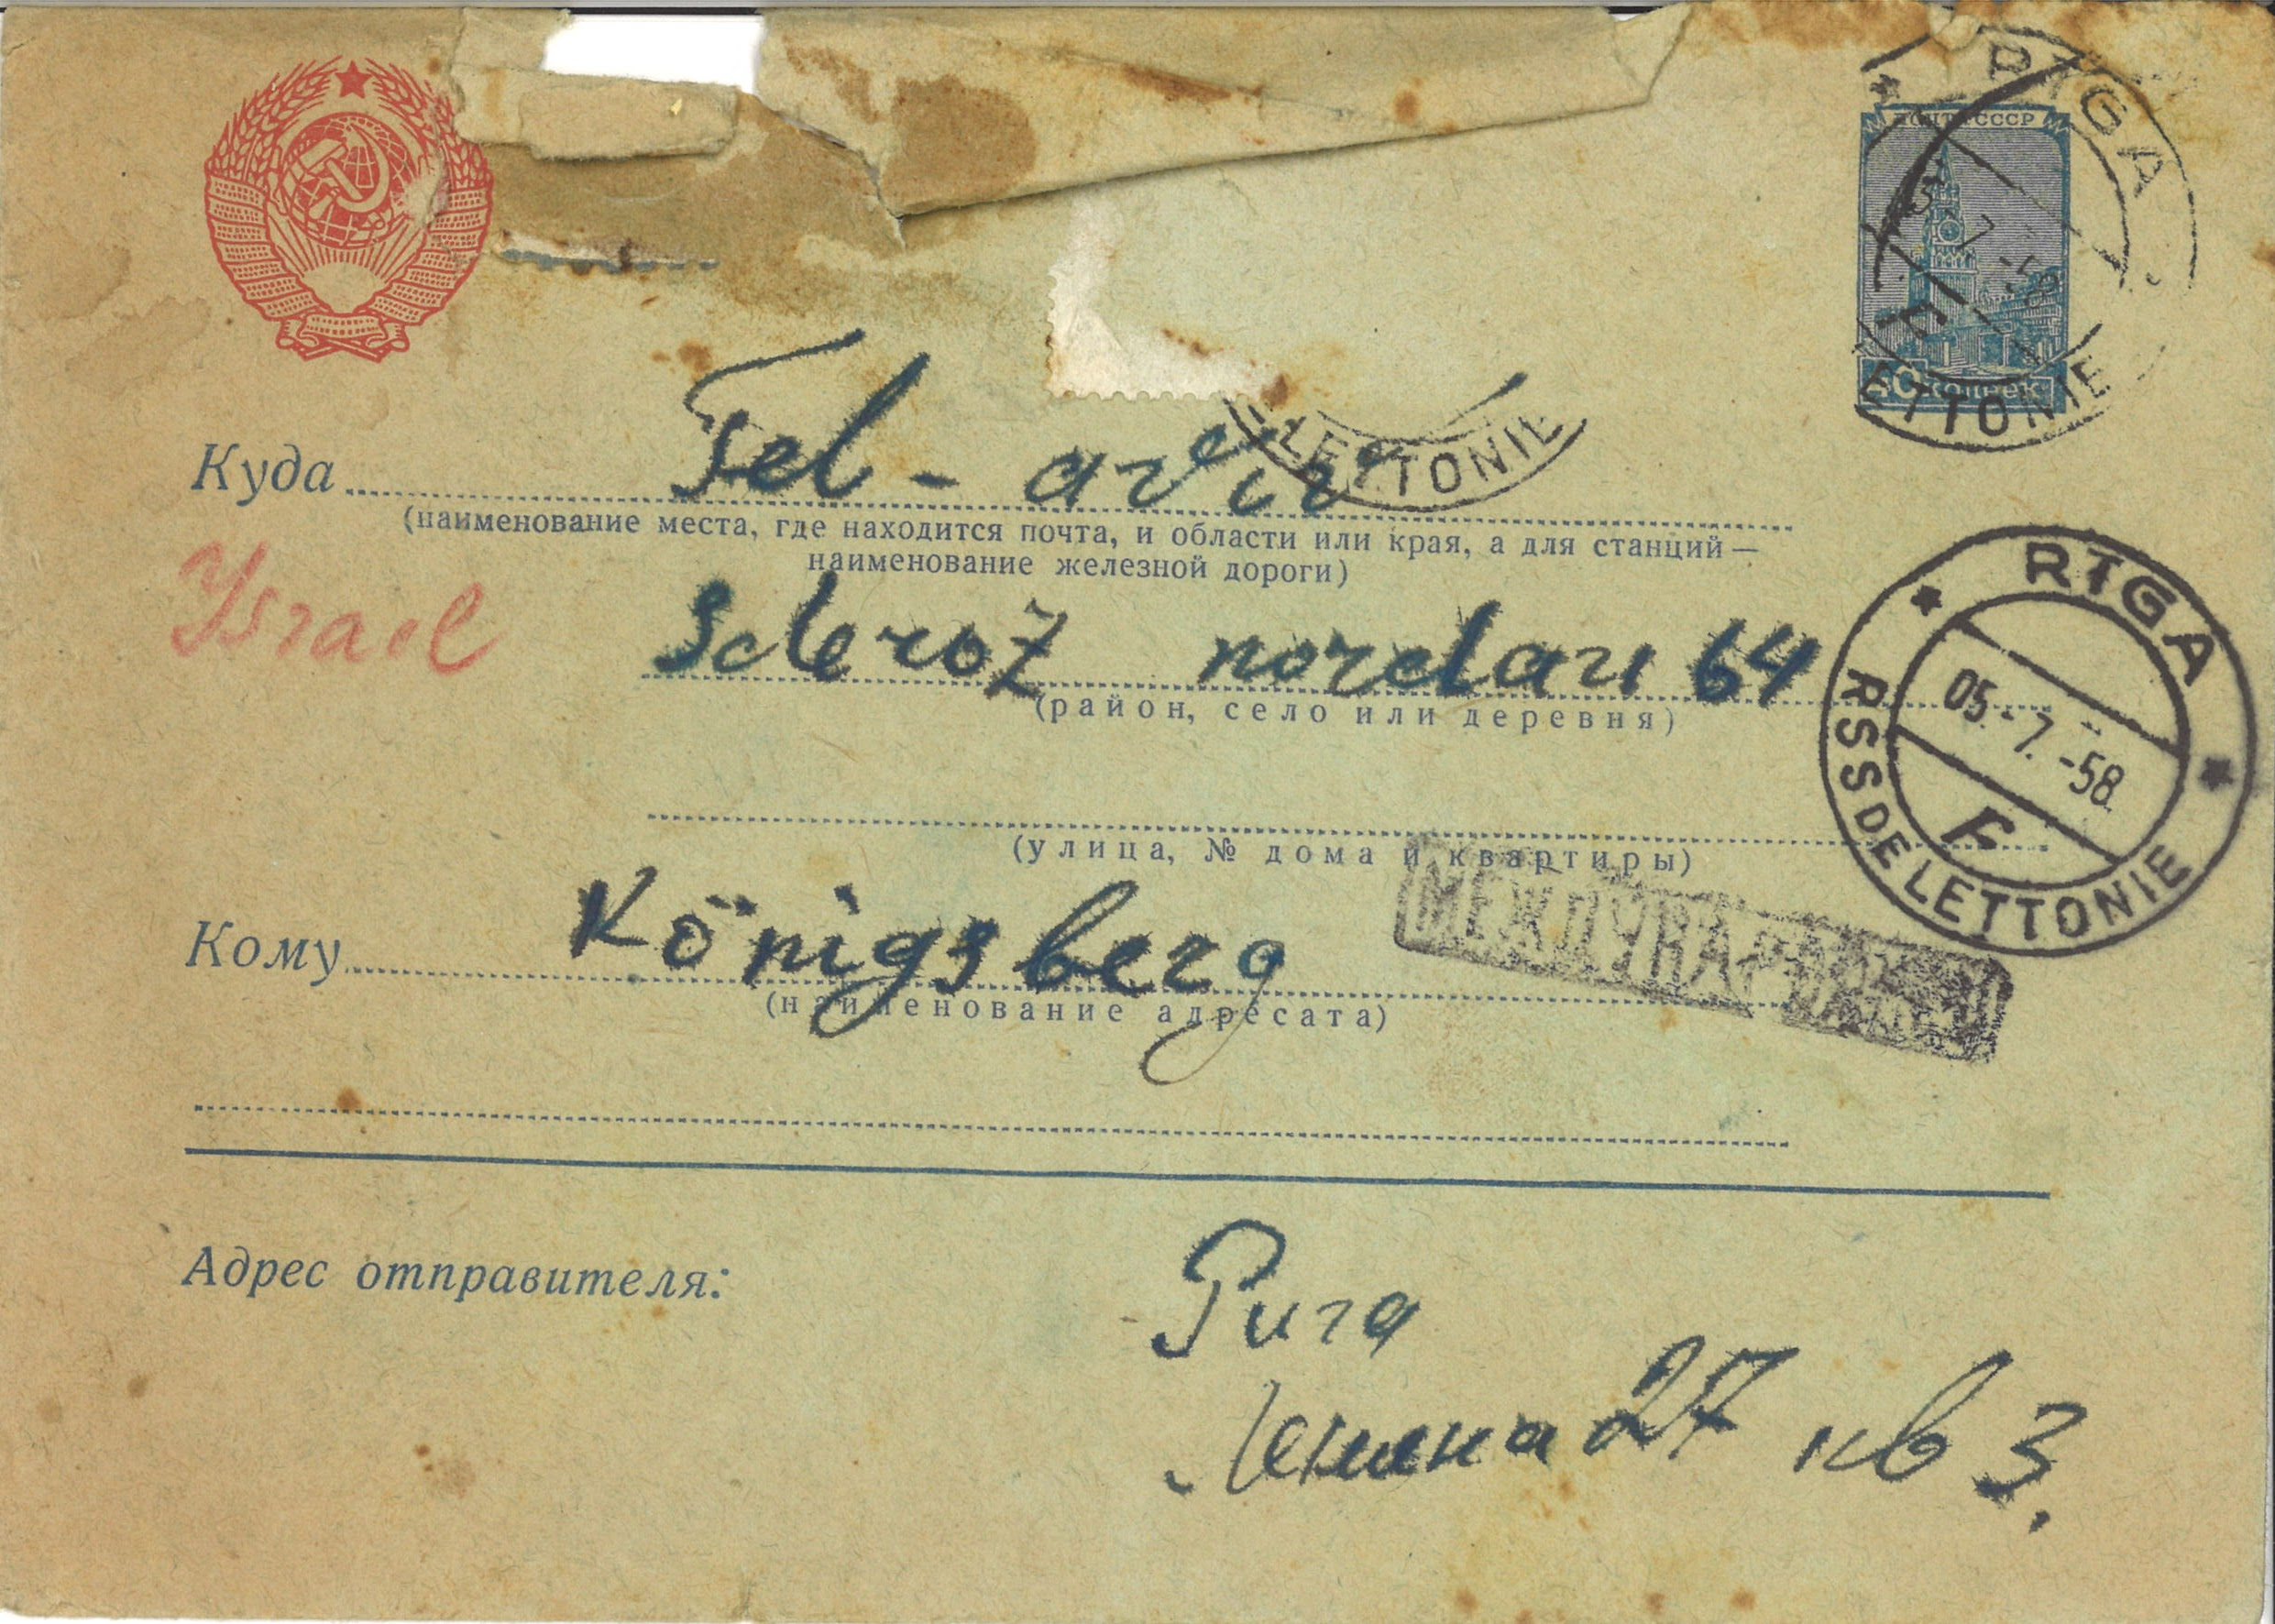 RIGA
ПОЧТА СССР
40 копеек
LETTONIE
Куда Tel-aviv
LETTONIE
(наименование места, где находится почта, и области или края, а для станций—
наименование железной дороги)
Ysrael
Sderoz nordau 64
(район, село или деревня)
RIGA
05.-7.-58.
RSS DE LETTONIE
(улица, № дома и квартиры)
МЕЖДУНАРОДНОЕ
Кому Königsberg
(наименование адресата)
Адрес отправителя:
Рига
Ленина 27 кв 3.